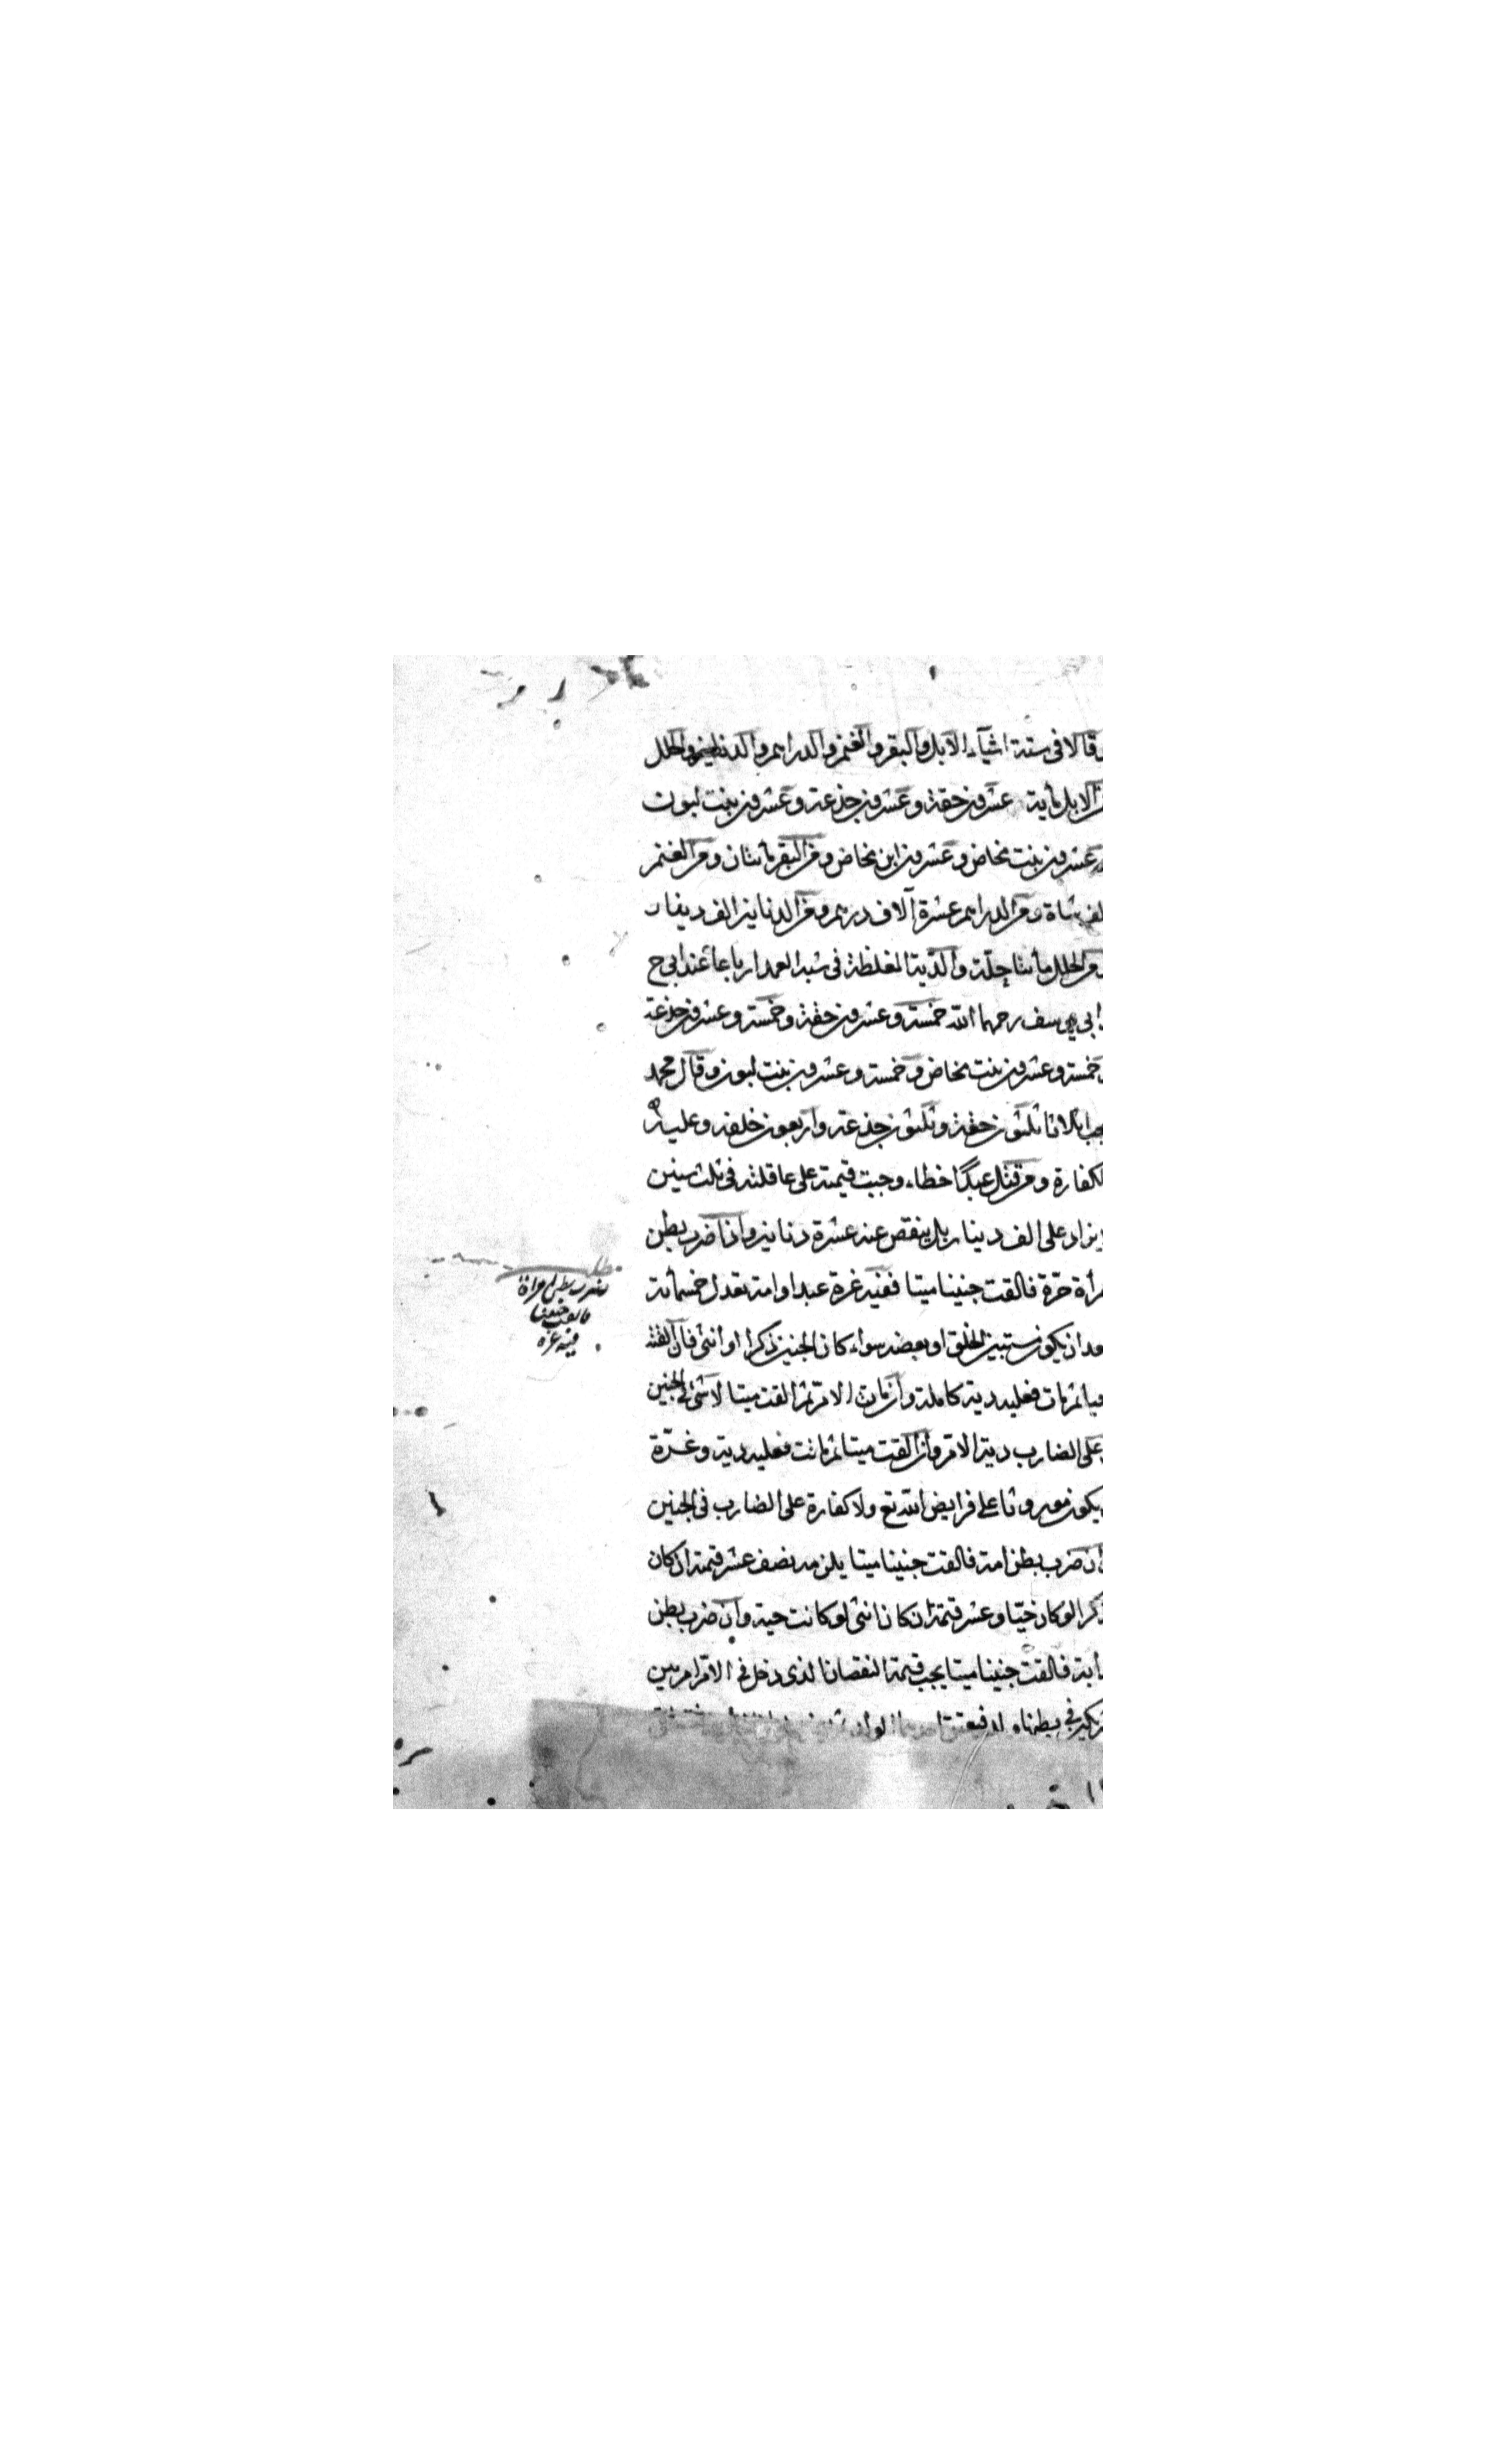 وقالا فى ستة اشيآء الابل والبقر والغنم والدراهم والدنانير والحلل
من الابل مأية عشرون حقة وعشرون جذعة وعشرون بنت لبون
وعشرون بنت مخاض وعشرون ابن مخاض ومن البقر مأتان ومن الغنم
الف شاة ومن الدراهم عشرة آلاف درهم ومن الدنانير الف دينار
ومن الحلل مأتا حلّة والدّية المغلظة فى شبه العمد ارباعا عند ابى ح
وابى يوسف رحمهما الله خمسة وعشرون حقة وخمسة وعشرون جذعة
وخمسة وعشرون بنت مخاض وخمسة وعشرون بنت لبون وقال محمد
يجب اثلاثا ثلثون حقة وثلثون جذعة واربعون خلفه وعليه
الكفارة ومن قتل عبدًا خطاء وجبت قيمته على عاقلته فى ثلث سنين
يزاد على الف دينار بل ينقص عنه عشرة دنانير واذا ضرب بطن
امرأة حرّة فالقت جنينا ميتا ففيه غرة عبد او امة تعدل خمسمأئة
بعد ان يكون مستبين الخلق او بعضه سواء كان الجنين ذكرا او أنثى فان القته
حيا ثم مات فعليه دية كاملة وان ماتت الام ثم القت ميتا لا شئ فى الجنين
وعلى الضارب دية الام وان القت ميتا ثم ماتت فعليه دية وغرّة
يكون موروثا على فرايض الله تع ولا كفارة على الضارب فى الجنين
وان ضرب بطن امة فالقت جنينا ميتا يلزمه نصف عشر قيمته ان كان
ذكرا لو كان حيّا وعشر قيمته ان كان انثى لو كانت حية وان ضرب بطن
دابة فالقت جنينا ميتا يجب قيمة النقصان الذى دخل فى الام
فى بطنها
ضرب بطن امراة
فالقت جنينا
ففيه غره